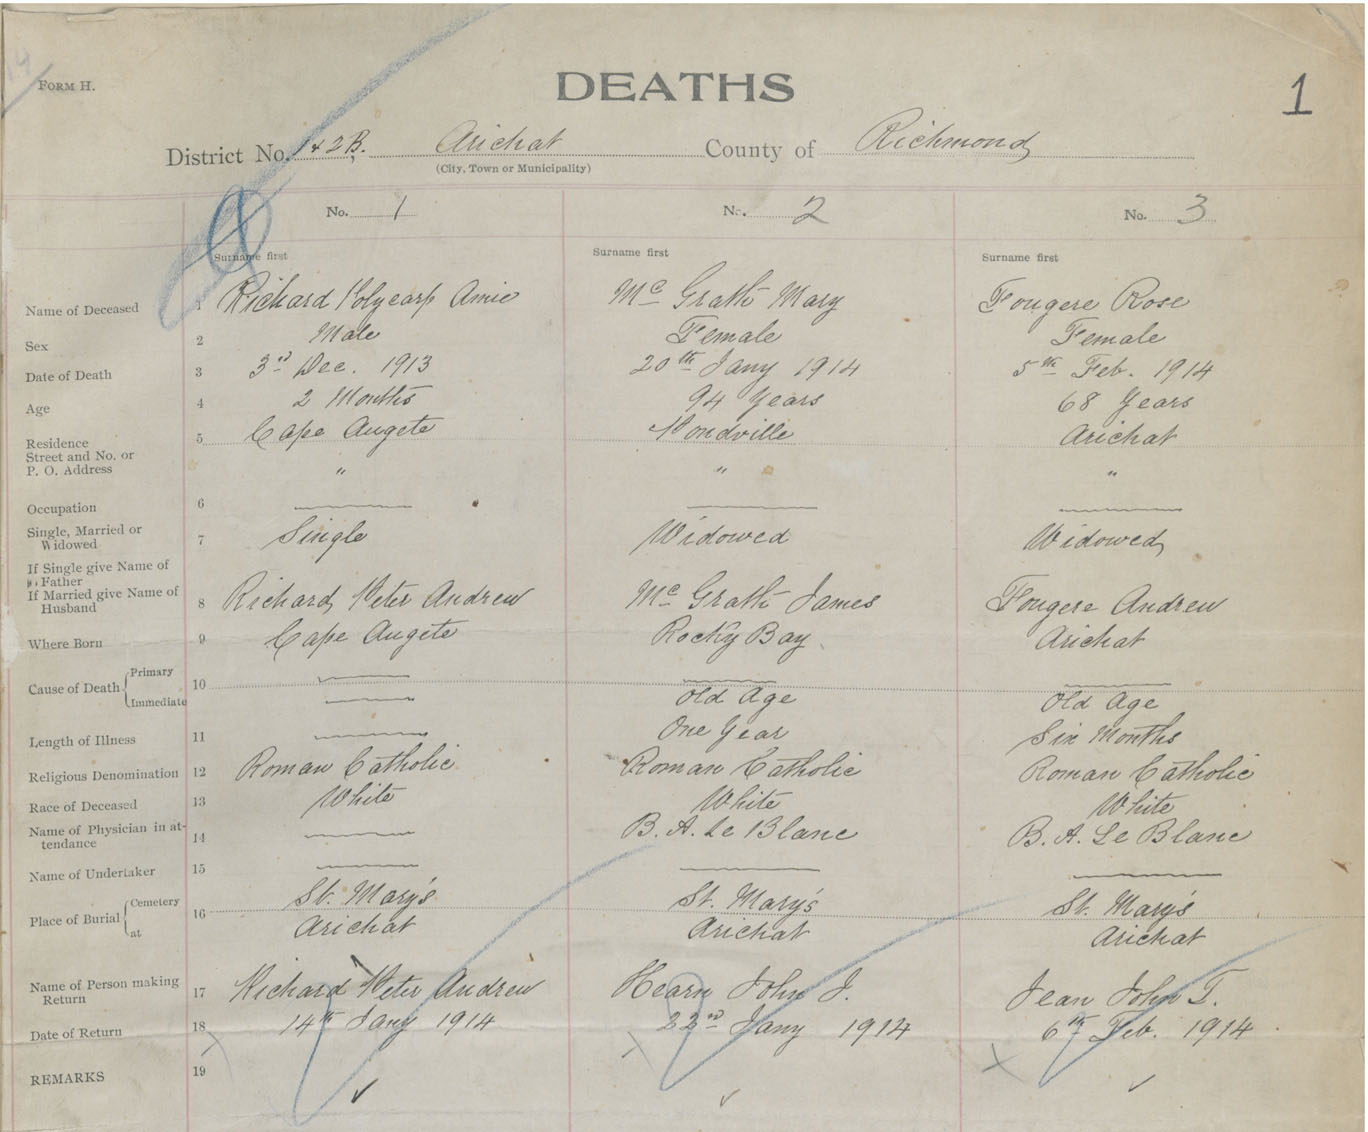 FORM H.
DEATHS
1
District No. 1 & 2 B. Arichat County of Richmond
(City, Town or Municipality)
No. 1 No. 2 No. 3
Surname first Surname first Surname first
Name of Deceased 1 Richard Polycarp Amie Mc Grath Mary Fougere Rose
Sex 2 Male Female Female
Date of Death 3 3rd Dec. 1913 20th Jany 1914 5th Feb. 1914
Age 4 2 Months 94 Years 68 Years
Residence 5 Cape Augete Pondville Arichat
Street and No. or
P. O. Address " " "
Occupation 6
Single, Married or
Widowed 7 Single Widowed Widowed
If Single give Name of
Father
If Married give Name of
Husband 8 Richard Peter Andrew Mc Grath James Fougere Andrew
Where Born 9 Cape Augete Rocky Bay Arichat
Cause of Death Primary 10
Immediate Old Age Old Age
Length of Illness 11 One Year Six Months
Religious Denomination 12 Roman Catholic Roman Catholic Roman Catholic
Race of Deceased 13 White White White
Name of Physician in at-
tendance 14 B. A. Le Blanc B. A. Le Blanc
Name of Undertaker 15
Place of Burial Cemetery 16 St. Mary's St. Mary's St. Mary's
at Arichat Arichat Arichat
Name of Person making
Return 17 Richard Peter Andrew Hearn John J. Jean John T.
Date of Return 18 14th Jany 1914 22nd Jany 1914 6th Feb. 1914
REMARKS 19